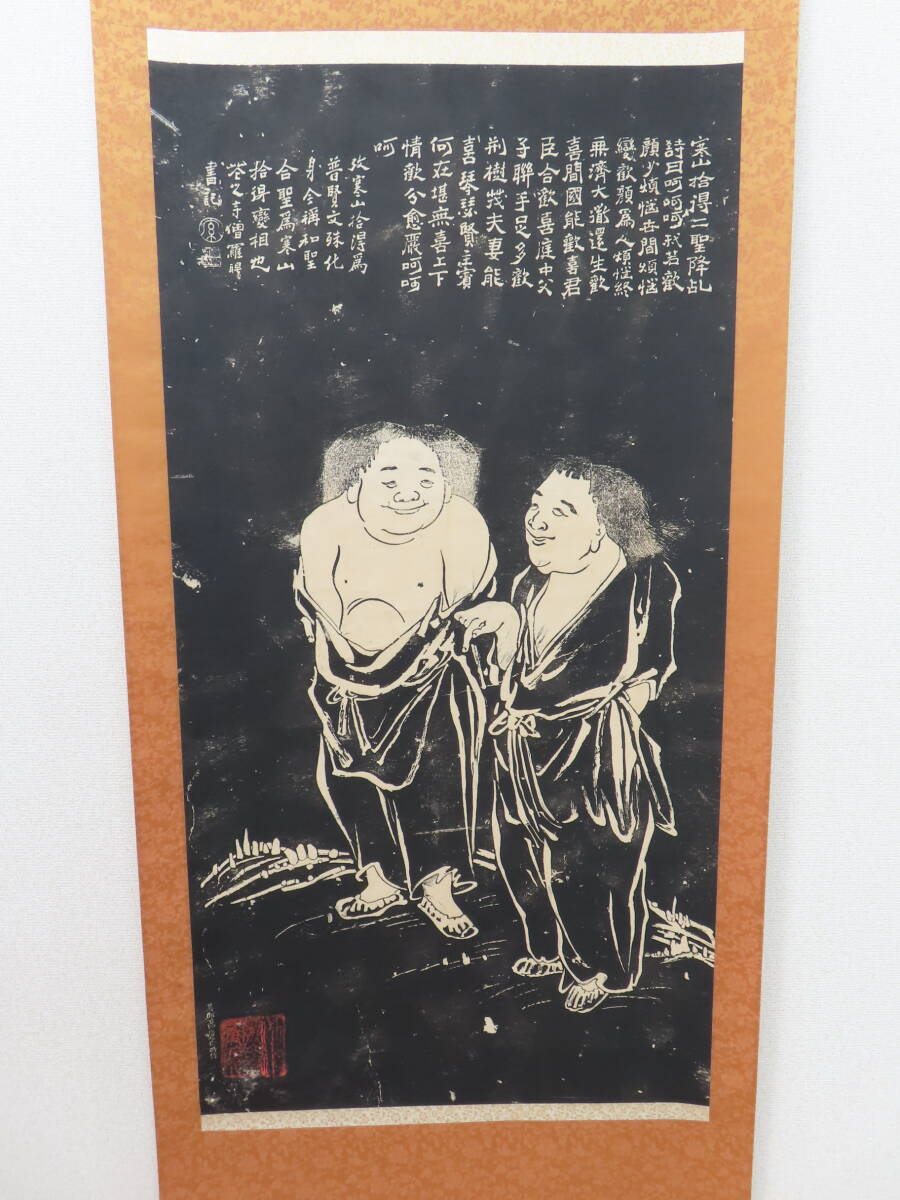 寒山拾得二聖降乩
詩曰呵呵呵我若歡
顏少煩惱世間煩惱
變歡顏為人煩惱終
無濟大道還生歡
喜間國能歡喜君
臣合歡喜庭中父
子聯手足多歡
荆樹茂夫妻能
喜琴瑟賢主賓
何在堪無喜上下
情歡分愈嚴呵呵
呵
攷寒山拾得為
普賢文殊化
身今稱和聖
合聖爲寒山
拾得變相也
花之寺僧羅聘
書記